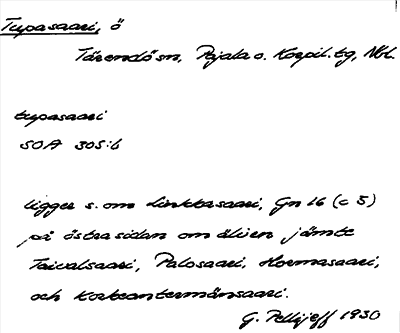 Tupasaari, ö
Tärendö sn, Pajala o. Korpil. tg, Nbl.
tupasaari
SOA 305:6
ligger s. om Linktasaari, Gn 16 (c 5)
på östra sidan om älven jämte
Taivalsaari, Palosaari, Hormasaari,
och Korteantermänsaari.
G. Pellijeff 1930